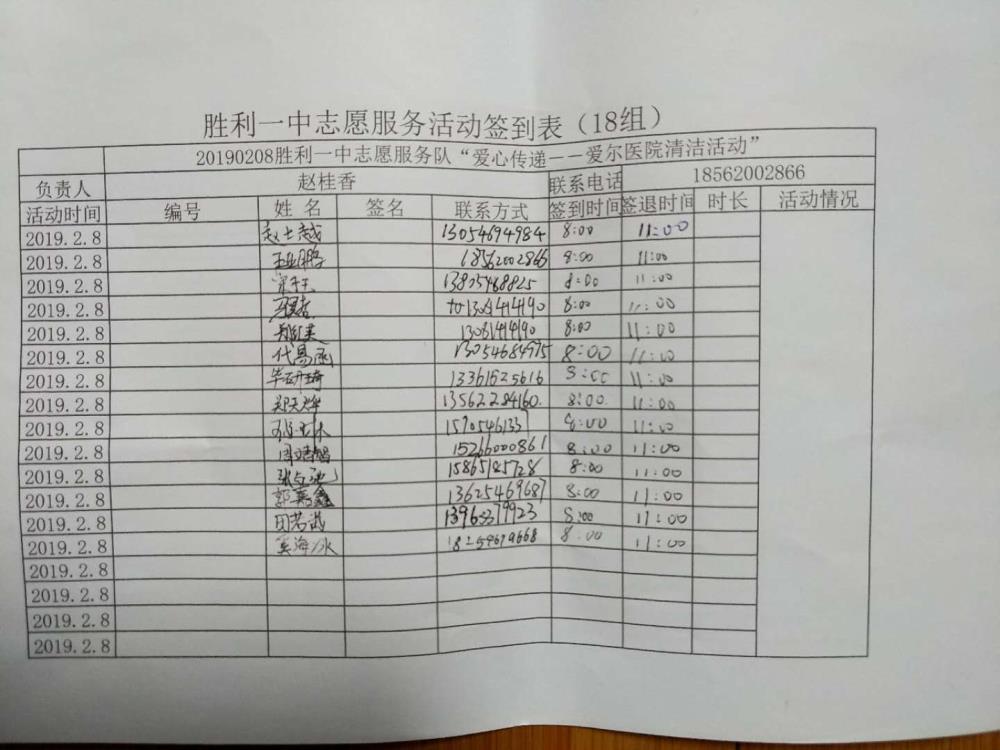 胜利一中志愿服务活动签到表（18组）
20190208胜利一中志愿服务队“爱心传递--爱尔医院清洁活动”
负责人 赵桂香 联系电话 18562002866
活动时间 编号 姓名 签名 联系方式 签到时间 签退时间 时长 活动情况
2019.2.8 赵士越 13054694984 8:00 11:00
2019.2.8 18562002866 8:00 11:00
2019.2.8 13805468825 8:00 11:00
2019.2.8 8:00 11:00
2019.2.8 8:00 11:00
2019.2.8 代易函 13054684975 8:00 11:00
2019.2.8 毕研琦 13361525616 8:00 11:00
2019.2.8 郑天烨 13562284160 8:00 11:00
2019.2.8 8:00 11:00
2019.2.8 15266000861 8:00 11:00
2019.2.8 15865185728 8:00 11:00
2019.2.8 郭嘉鑫 13625469687 8:00 11:00
2019.2.8 田若诚 8:00 11:00
2019.2.8 8:00 11:00
2019.2.8
2019.2.8
2019.2.8
2019.2.8